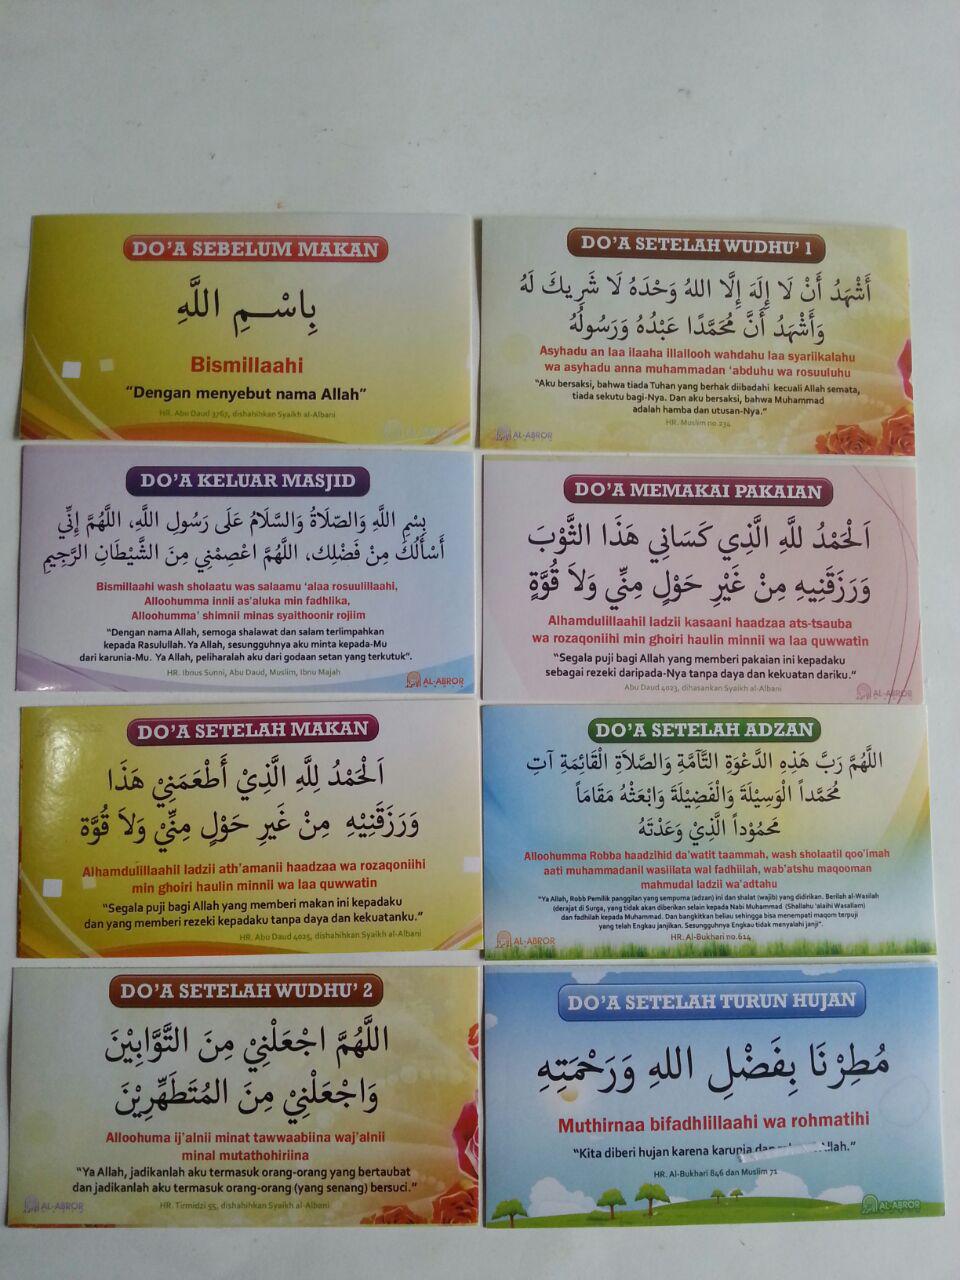 DO'A SEBELUM MAKAN
بِاسْمِ اللَّهِ
Bismillaahi
"Dengan menyebut nama Allah"
HR. Abu Daud 3767, dishahihkan Syaikh al-Albani
AL-ABROR
DO'A SETELAH WUDHU' 1
أَشْهَدُ أَنْ لَا إِلَهَ إِلَّا اللهُ وَحْدَهُ لَا شَرِيكَ لَهُ
وَأَشْهَدُ أَنَّ مُحَمَّدًا عَبْدُهُ وَرَسُولُهُ
Asyhadu an laa ilaaha illallooh wahdahu laa syariikalahu
wa asyhadu anna muhammadan 'abduhu wa rosuuluhu
"Aku bersaksi, bahwa tiada Tuhan yang berhak diibadahi kecuali Allah semata,
tiada sekutu bagi-Nya. Dan aku bersaksi, bahwa Muhammad
adalah hamba dan utusan-Nya."
HR. Muslim no.234
AL-ABROR
DO'A KELUAR MASJID
بِسْمِ اللَّهِ وَالصَّلَاةُ وَالسَّلَامُ عَلَى رَسُولِ اللَّهِ، اللَّهُمَّ إِنِّي
أَسْأَلُكَ مِنْ فَضْلِك، اللَّهُمَّ اعْصِمْنِي مِنَ الشَّيْطَانِ الرَّجِيمِ
Bismillaahi wash sholaatu was salaamu 'alaa rosuulillaahi,
Alloohumma innii as'aluka min fadhlika,
Alloohumma' shimnii minas syaithoonir rojiim
"Dengan nama Allah, semoga shalawat dan salam terlimpahkan
kepada Rasulullah. Ya Allah, sesungguhnya aku minta kepada-Mu
dari karunia-Mu. Ya Allah, peliharalah aku dari godaan setan yang terkutuk".
HR. Ibnus Sunni, Abu Daud, Muslim, Ibnu Majah
AL-ABROR
DO'A MEMAKAI PAKAIAN
اَلْحَمْدُ للَّهِ الَّذِي كَسَانِي هَذَا الثَّوْبَ
وَرَزَقَنِيهِ مِنْ غَيْرِ حَوْلٍ مِنِّي وَلاَ قُوَّةٍ
Alhamdulillaahil ladzii kasaani haadzaa ats-tsauba
wa rozaqoniihi min ghoiri haulin minnii wa laa quwwatin
"Segala puji bagi Allah yang memberi pakaian ini kepadaku
sebagai rezeki daripada-Nya tanpa daya dan kekuatan dariku."
Abu Daud 4023, dihasankan Syaikh al-Albani
AL-ABROR
DO'A SETELAH MAKAN
اَلْحَمْدُ لِلَّهِ الَّذِيْ أَطْعَمَنِيْ هَذَا
وَرَزَقَنِيْهِ مِنْ غَيرِ حَوْلٍ مِنِّيْ وَلاَ قُوَّة
Alhamdulillaahil ladzii ath'amanii haadzaa wa rozaqoniihi
min ghoiri haulin minnii wa laa quwwatin
"Segala puji bagi Allah yang memberi makan ini kepadaku
dan yang memberi rezeki kepadaku tanpa daya dan kekuatanku."
HR. Abu Daud 4025, dishahihkan Syaikh al-Albani
DO'A SETELAH ADZAN
اللَّهُمَّ رَبَّ هَذِهِ الدَّعْوَةِ التَّآمَّةِ وَالصَّلاَةِ الْقَائِمَةِ آتِ
مُحَمَّداً الْوَسِيْلَةَ وَالْفَضِيْلَةَ وَابْعَثْهُ مَقَامَاً
مَحمُوْداً الَّذِيْ وَعَدْتَهُ
Alloohumma Robba haadzihid da'watit taammah, wash sholaatil qoo'imah
aati muhammadanil wasiilata wal fadhiilah, wab'atshu maqooman
mahmudal ladzii wa'adtahu
"Ya Allah, Robb Pemilik panggilan yang sempurna (adzan) ini dan shalat (wajib) yang didirikan. Berilah al-Wasilah
(derajat di Surga, yang tidak akan diberikan selain kepada Nabi Muhammad (Shallahu 'alaihi Wasallam)
dan fadhilah kepada Muhammad. Dan bangkitkan beliau sehingga bisa menempati maqom terpuji
yang telah Engkau janjikan. Sesungguhnya Engkau tidak menyalahi janji".
HR. Al-Bukhari no.614
AL-ABROR
DO'A SETELAH WUDHU' 2
اللَّهُمَّ اجْعَلْنِيْ مِنَ التَّوَّابِيْنَ
وَاجْعَلْنِيْ مِنَ المُتَطَهِّرِيْنَ
Alloohuma ij'alnii minat tawwaabiina waj'alnii
minal mutathohiriina
"Ya Allah, jadikanlah aku termasuk orang-orang yang bertaubat
dan jadikanlah aku termasuk orang-orang (yang senang) bersuci."
HR. Tirmidzi 55, dishahihkan Syaikh al-Albani
AL-ABROR
DO'A SETELAH TURUN HUJAN
مُطِرْنَا بِفَضْلِ اللهِ وَرَحْمَتِهِ
Muthirnaa bifadhlillaahi wa rohmatihi
"Kita diberi hujan karena karunia dan Allah."
HR. Al-Bukhari 846 dan Muslim 71
AL-ABROR